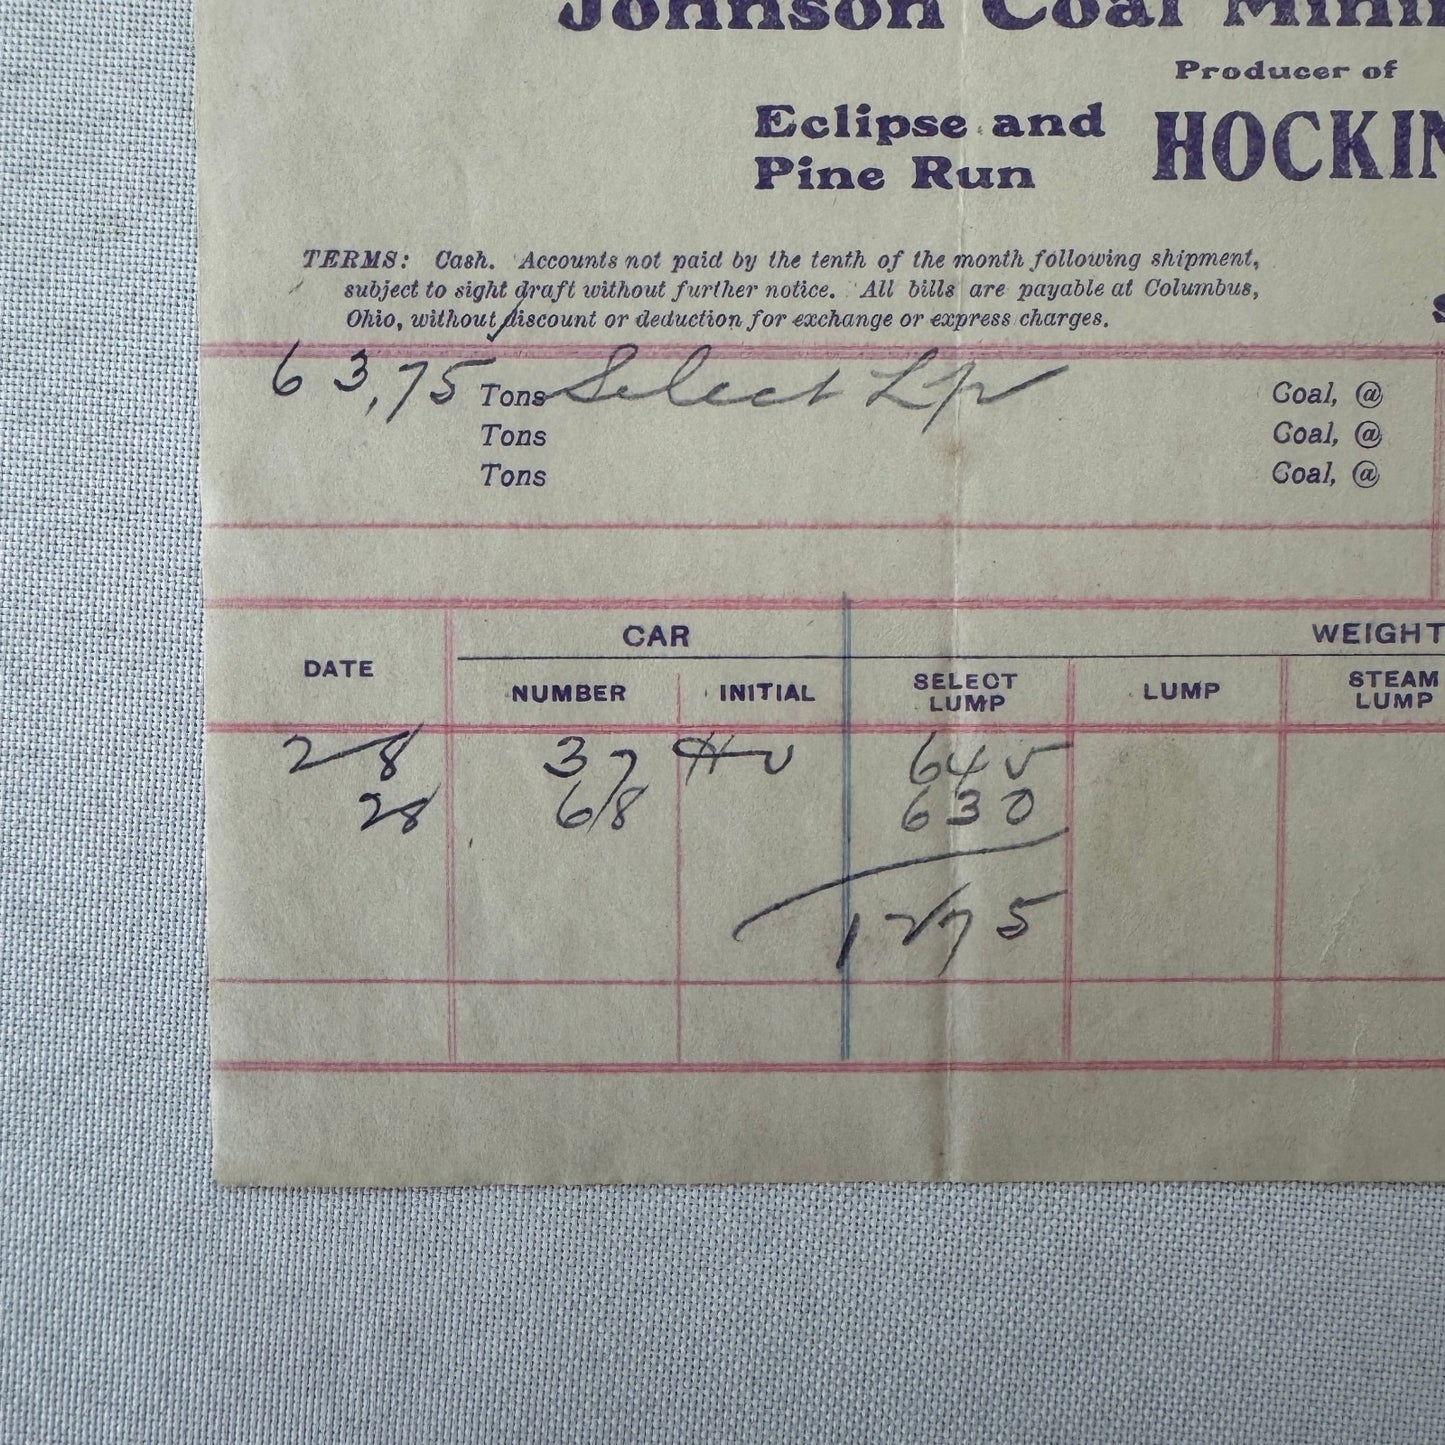 Johnson Coal Minin
Producer of
Eclipse and
Pine Run
HOCKIN
TERMS: Cash. Accounts not paid by the tenth of the month following shipment,
subject to sight draft without further notice. All bills are payable at Columbus,
Ohio, without discount or deduction for exchange or express charges.
63,75 Tons Select Lp Coal, @
Tons Coal, @
Tons Coal, @
CAR WEIGHT
DATE NUMBER INITIAL SELECT LUMP LUMP STEAM LUMP
28 37 645
28 68 630
1275